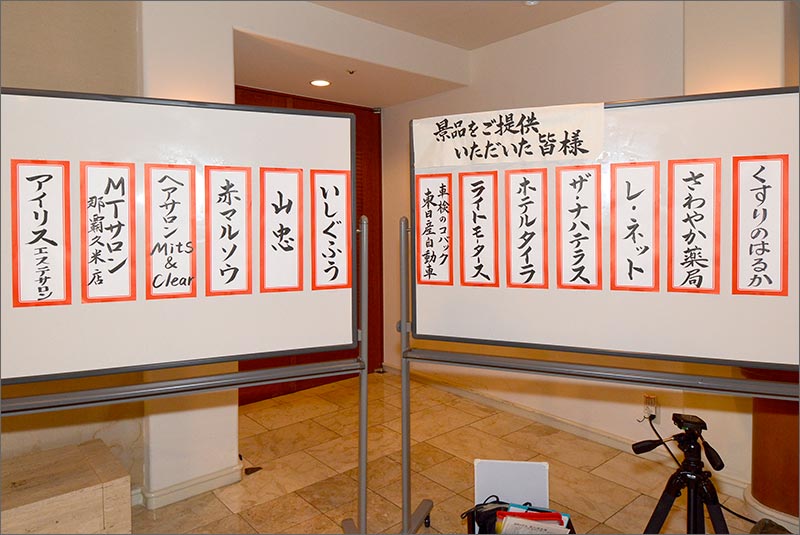 景品をご提供
いただいた皆様
くすりのはるか
さわやか薬局
レ・ネット
ザ・ナハテラス
ホテルタイラ
ライトモータース
車検のコバック
東日産自動車
いしぐふう
山忠
赤マルソウ
ヘアサロン
Mits
&
Clear
MTサロン
那覇久米店
アイリスエステサロン